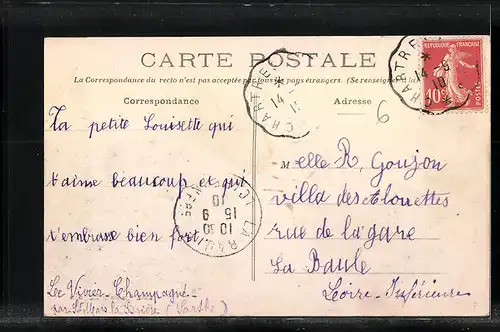 CARTE POSTALE
La Correspondance du recto n'est pas acceptée par tous pays étrangers. (Se renseigner à la
Correspondance
Adresse
6
La petite Louisette qui
t'aime beaucoup et qui
t'embrasse bien fort
Le Vivier-Champagné
par St Mars la Brière (Sarthe)
Melle R, Goujon
villa des Alouettes
rue de la gare
La Baule
Loire-Inférieure
CHARTRE
14
CHARTRE
14 -9
10
REPUBLIQUE FRANÇAISE
10c
POSTES
LA BAULE
10 30
15 9
10